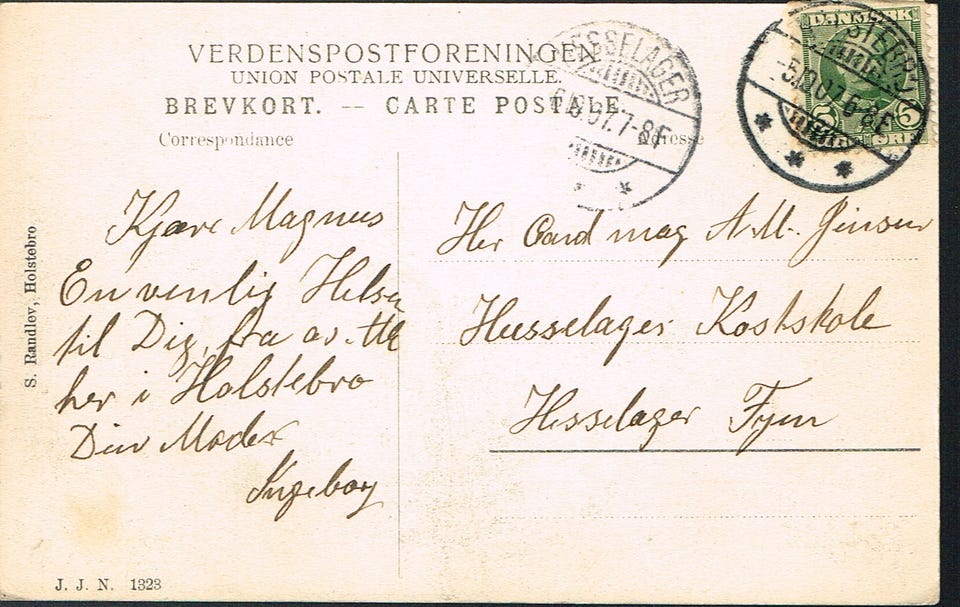 VERDENSPOSTFORENINGEN
UNION POSTALE UNIVERSELLE.
BREVKORT. -- CARTE POSTALE.
Correspondance
Adresse
HESSELAGER
7-8F
DANMARK
5.10.07.6-8E
5 5
ØRE
Kjære Magnus
En venlig Helsen
til Dig, fra os alle
her i Holstebro
Din Moder
Ingeborg
Her Cand mag A.M. Jensen
Hesselager Kostskole
Hesselager Fyen
S. Randlev, Holstebro
J. J. N. 1323